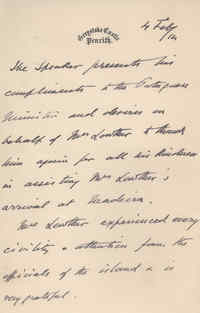 Greystoke Castle
Penrith.
4 Feb/14
The Speaker presents his
compliments to the Portuguese
Minister and desires on
behalf of Mrs Lowther to thank
him again for all his kindness
in assisting Mrs Lowther's
arrival at Madeira.
Mrs Lowther experienced every
civility & attention from the
officials of the island & is
very grateful.